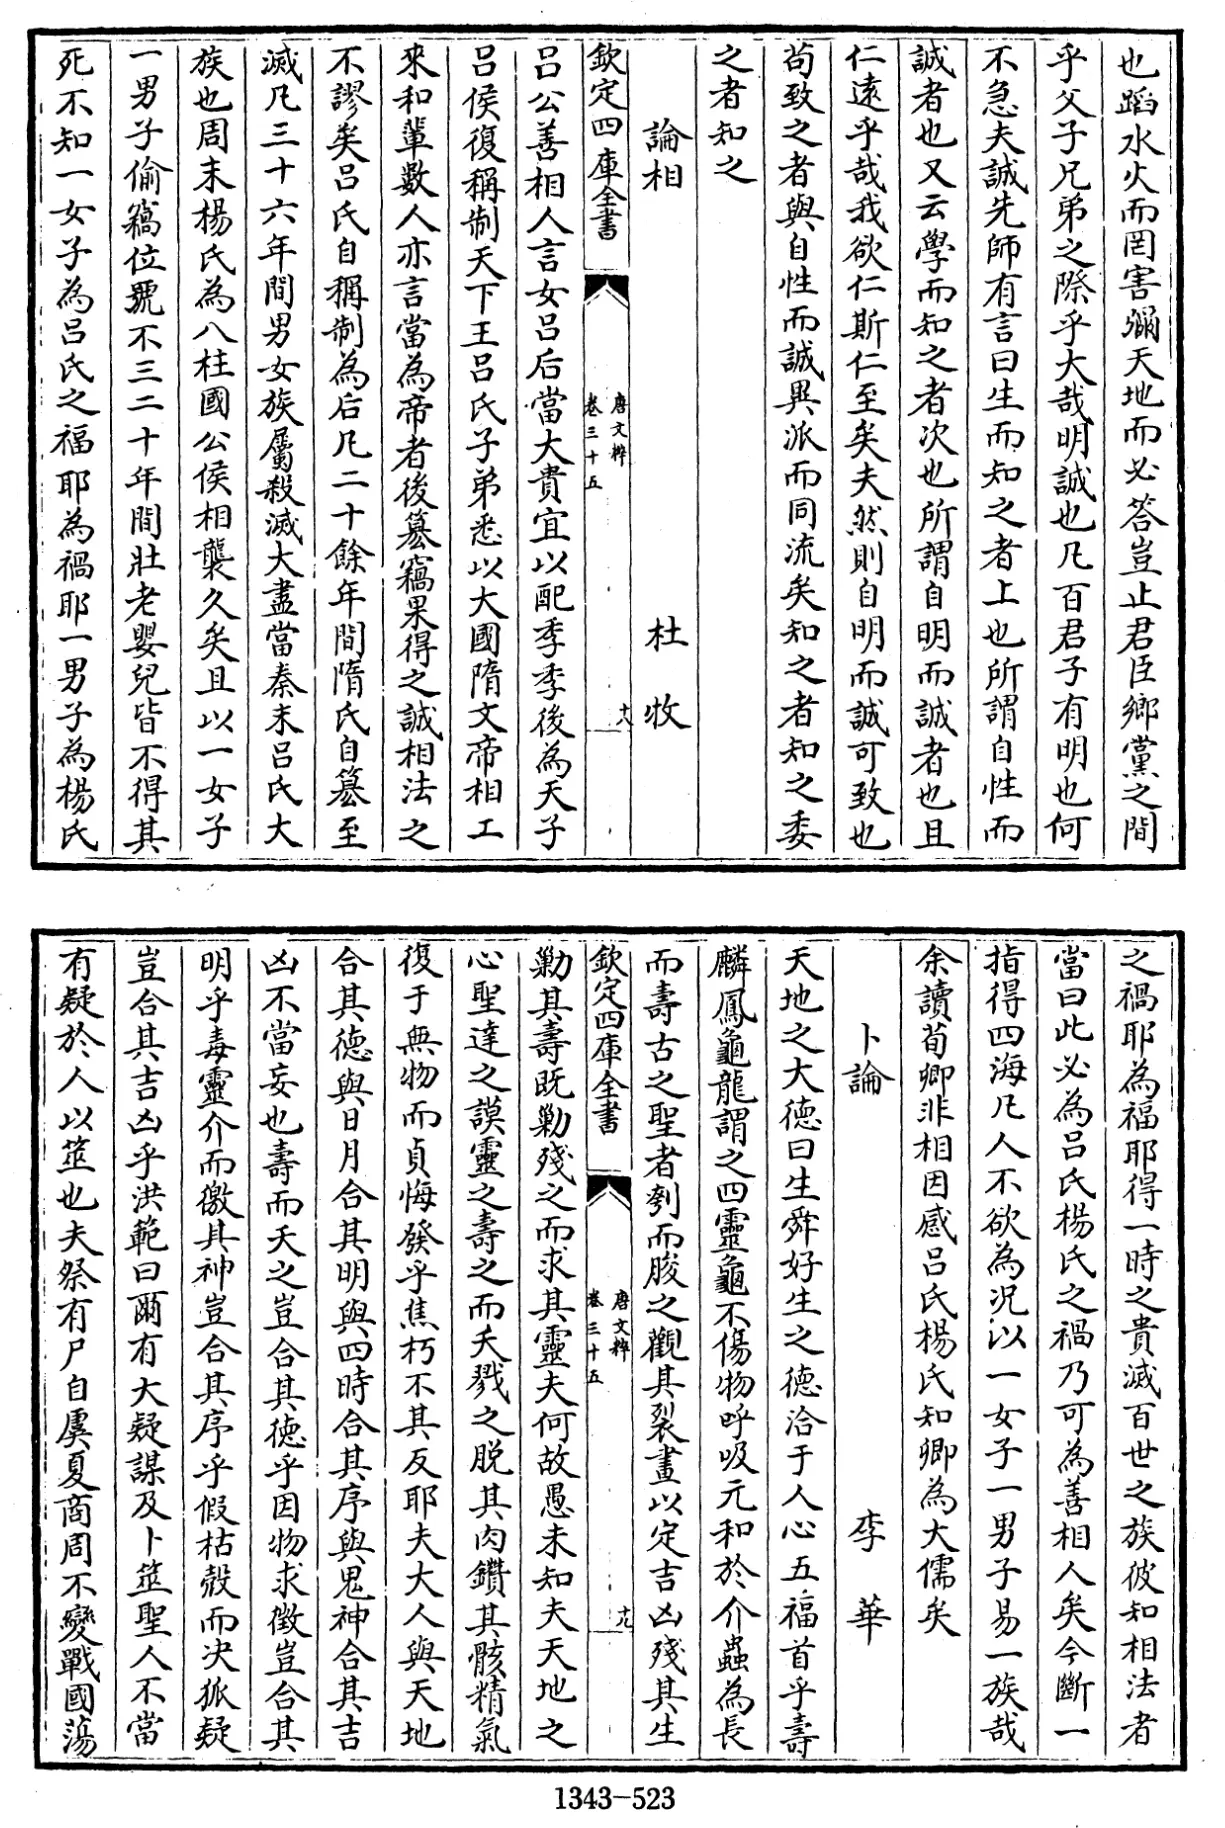 也蹈水火而罔害彌天地而必答豈止君臣鄉黨之間
乎父子兄弟之際乎大哉明誠也凡百君子有明也何
不急夫誠先師有言曰生而知之者上也所謂自性而
誠者也又云學而知之者次也所謂自明而誠者也且
仁遠乎哉我欲仁斯仁至矣夫然則自明而誠可致也
苟致之者與自性而誠異派而同流矣知之者知之委
之者知之
論相 杜牧
欽定四庫全書 唐文粹 卷三十五 十八
呂公善相人言女呂后當大貴宜以配季季後為天子
呂侯復稱制天下王呂氏子弟悉以大國隋文帝相工
來和輩數人亦言當為帝者後簒竊果得之誠相法之
不謬矣呂氏自稱制為后凡二十餘年間隋氏自簒至
滅凡三十六年間男女族屬殺滅大盡當秦末呂氏大
族也周末楊氏為八柱國公侯相襲久矣且以一女子
一男子偷竊位號不三二十年間壯老嬰兒皆不得其
死不知一女子為呂氏之福耶為禍耶一男子為楊氏
之禍耶為福耶得一時之貴滅百世之族彼知相法者
當曰此必為呂氏楊氏之禍乃可為善相人矣今斷一
指得四海凡人不欲為況以一女子一男子易一族哉
余讀荀卿非相因感呂氏楊氏知卿為大儒矣
卜論 李華
天地之大德曰生舜好生之德洽于人心五福首乎壽
麟鳳龜龍謂之四靈龜不傷物呼吸元和於介蟲為長
而壽古之聖者刳而朘之觀其裂畫以定吉凶殘其生
欽定四庫全書 唐文粹 卷三十五 十九
勦其壽既勦殘之而求其靈夫何故愚未知夫天地之
心聖達之謨靈之壽之而夭戮之脫其肉鑽其骸精氣
復于無物而貞悔發乎焦朽不其反耶夫大人與天地
合其德與日月合其明與四時合其序與鬼神合其吉
凶不當妄也壽而夭之豈合其德乎因物求徵豈合其
明乎毒靈介而徼其神豈合其序乎假枯殼而決狐疑
豈合其吉凶乎洪範曰爾有大疑謀及卜筮聖人不當
有疑於人以筮也夫祭有尸自虞夏商周不變戰國蕩
1343-523